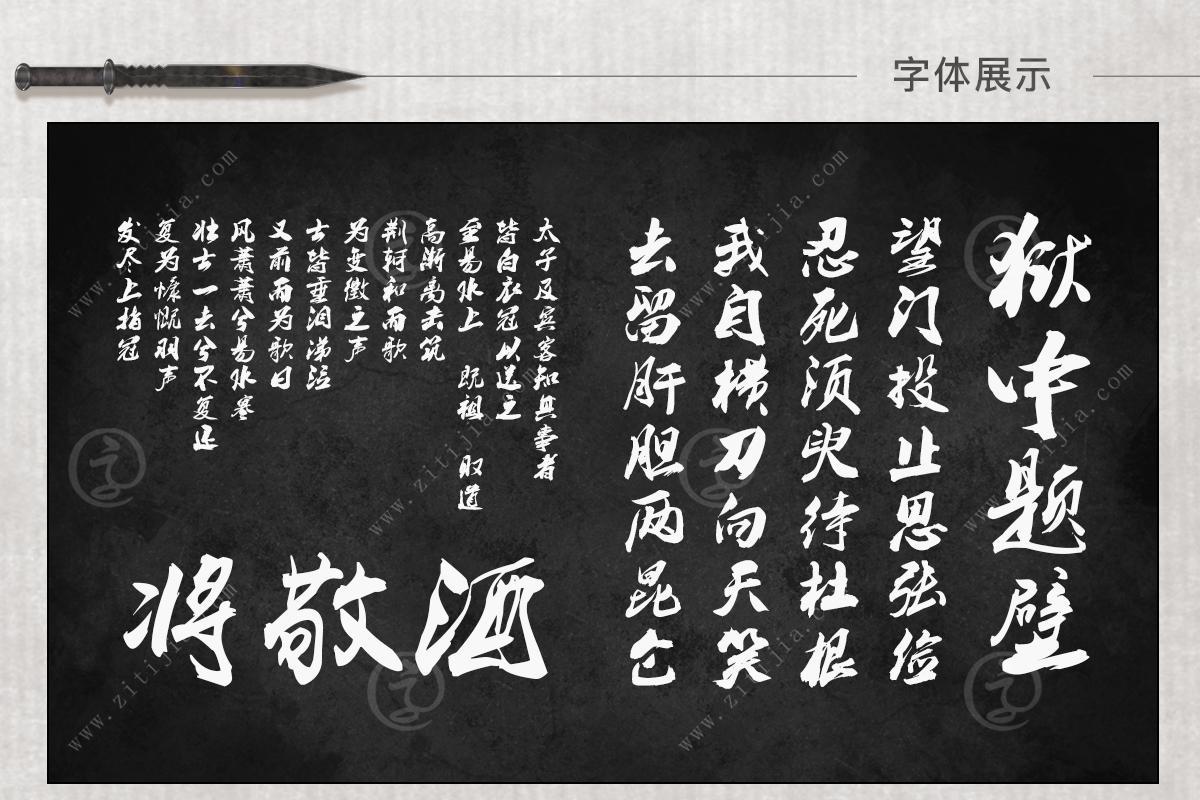 字体展示
狱中题壁
望门投止思张俭
忍死须臾待杜根
我自横刀向天笑
去留肝胆两昆仑
太子及宾客知其事者
皆白衣冠以送之
至易水上 既祖 取道
高渐离击筑
荆轲和而歌
为变徵之声
士皆垂泪涕泣
又前而为歌曰
风萧萧兮易水寒
壮士一去兮不复还
复为慷慨羽声
发尽上指冠
将敬酒
www.zitijia.com
www.zitijia.com
www.zitijia.com
www.zitijia.com
www.zitijia.com
www.zitijia.com